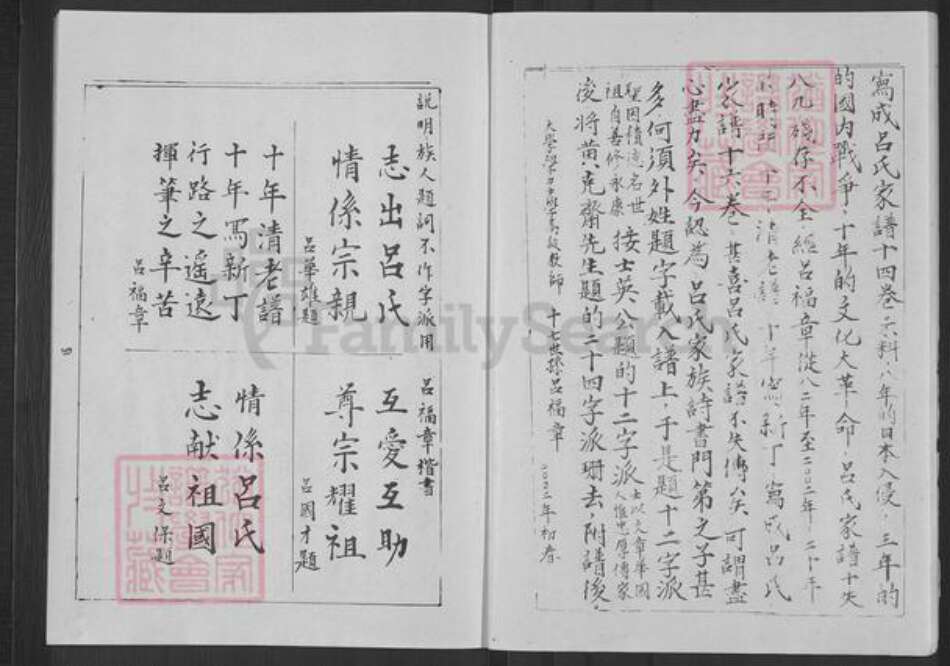 寫成呂氏家譜十四卷示料八年的日本入侵，三年的
的國内戰爭，十年的文化大革命，呂氏家譜十失
八九，殘存不全，經呂福章從八二年至二〇〇二年，二十年
清老譜，十年寫新丁，寫成呂氏
家譜十六卷，甚喜呂氏家譜不失傳矣，可謂盡
心盡力矣，今認為呂氏家族詩書門第之子甚
多何須外姓題字載入譜上，于是題十二字派
聖因積德名世
祖自善修永康
接士英公題的十二字派
士以文章華國
人惟中厚傳家
後將黄克齋先生題的二十四字派珊去，附譜後，
教師 十七世孫呂福章 二〇〇二年初春
説明族人題詞不作字派用 呂福章楷書
志出呂氏
情係宗親
呂華雄題
十年清老譜
十年寫新丁
行路之遥遠
揮筆之辛苦
呂福章
互愛互助
尊宗耀祖
呂國才題
情係呂氏
志献祖國
呂文保題
FamilySearch